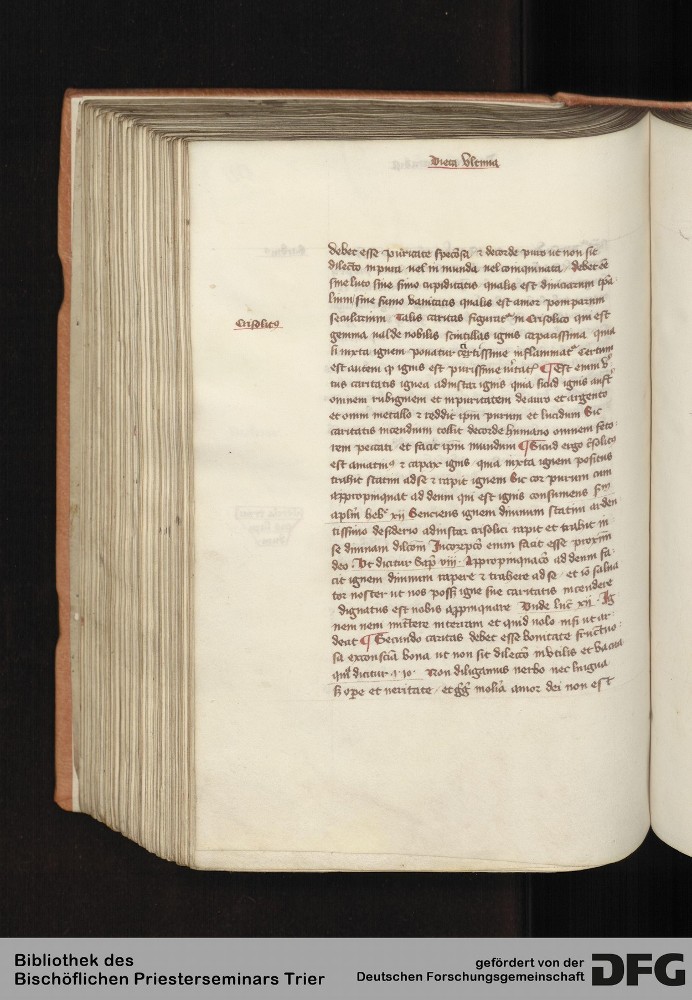 Dieta Vltima
debet esse puritate speciosa et decorde puro ut non sit
dilectio inpura uel in munda uel coinquinata debet eē
sine luto sine fimo cupiditatis qualis est diuiciarum tpa
lium / sine fumo vanitatis qualis est amor pomparum
secularium Talis caritas figurat in Crisolico qui est
Crisolicus
gemma ualde nobilis scintillas ignis capacissima quia
si iuxta ignem ponatur certissime inflammat Certum
est autem qꝫ ignis est purissime Est enim
tus caritatis ignea adinstar ignis quia sicud ignis aufert
omnem rubiginem et inpuritatem de auro et argento
et omni metallo et reddit ipm purum et lucidum Sic
caritatis incendium tollit decorde humano omnem feto
rem peccati et facit ipm mundum ¶ Sicud ergo crisolicus
est amatiuus et capax ignis quia iuxta ignem positus
trahit statim adse et rapit ignem Sic cor purum cum
appropinquat ad deum qui est ignis consumens Scdm
aplm heb xij Senciens ignem diuinum statim arden
tissimo desiderio adinstar crisolici rapit et trahit in
se diuinam dilcoem Incorrupcio enim facit esse proximum
deo . Ut dicitur Sap viij . Appropinquacio ad deum fa
cit ignem diuinum rapere et trahere ad se et io salua
tor noster ut nos posset igne sue caritatis incendere
dignatus est nobis appinquare Unde luc xij . Ig
nem ueni mittere in terram et quid uolo nisi ut ar
deat ¶ Secundo caritas debet esse bonitate fructuo
sa ex consciencia bona ut non sit dileccio inutilis et vacua
dicitur 1 jo Non diligamus uerbo nec lingua
s opere et ueritate et gg omelia amor dei non est
Bibliothek des
Bischöflichen Priesterseminars Trier
gefördert von der
Deutschen Forschungsgemeinschaft
DFG